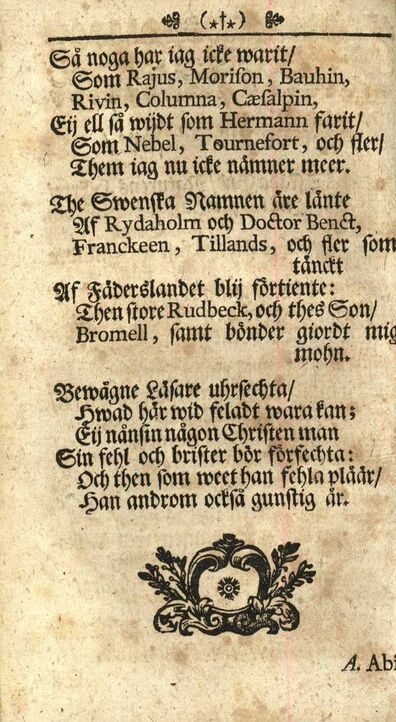 (⋆†⋆)
Så noga har iag icke warit/
Som Rajus, Morison, Bauhin,
Rivin, Columna, Cæsalpin,
Eij ell så wijdt som Hermann farit/
Som Nebel, Tournefort, och fler/
Them iag nu icke nämner meer.
The Swenska Namnen äre länte
Af Rydaholm och Doctor Benct,
Franckeen, Tillands, och fler som
tänckt
Af Fäderslandet blij förtiente:
Then store Rudbeck, och thes Son/
Bromell, samt bönder giordt mig
mohn.
Bewägne Läsare uhrsechta/
Hwad här wid feladt wara kan;
Eij nånsin någon Christen man
Sin fehl och brister bör förfechta:
Och then som weet han fehla pläär/
Han androm också gunstig är.
A. Abi